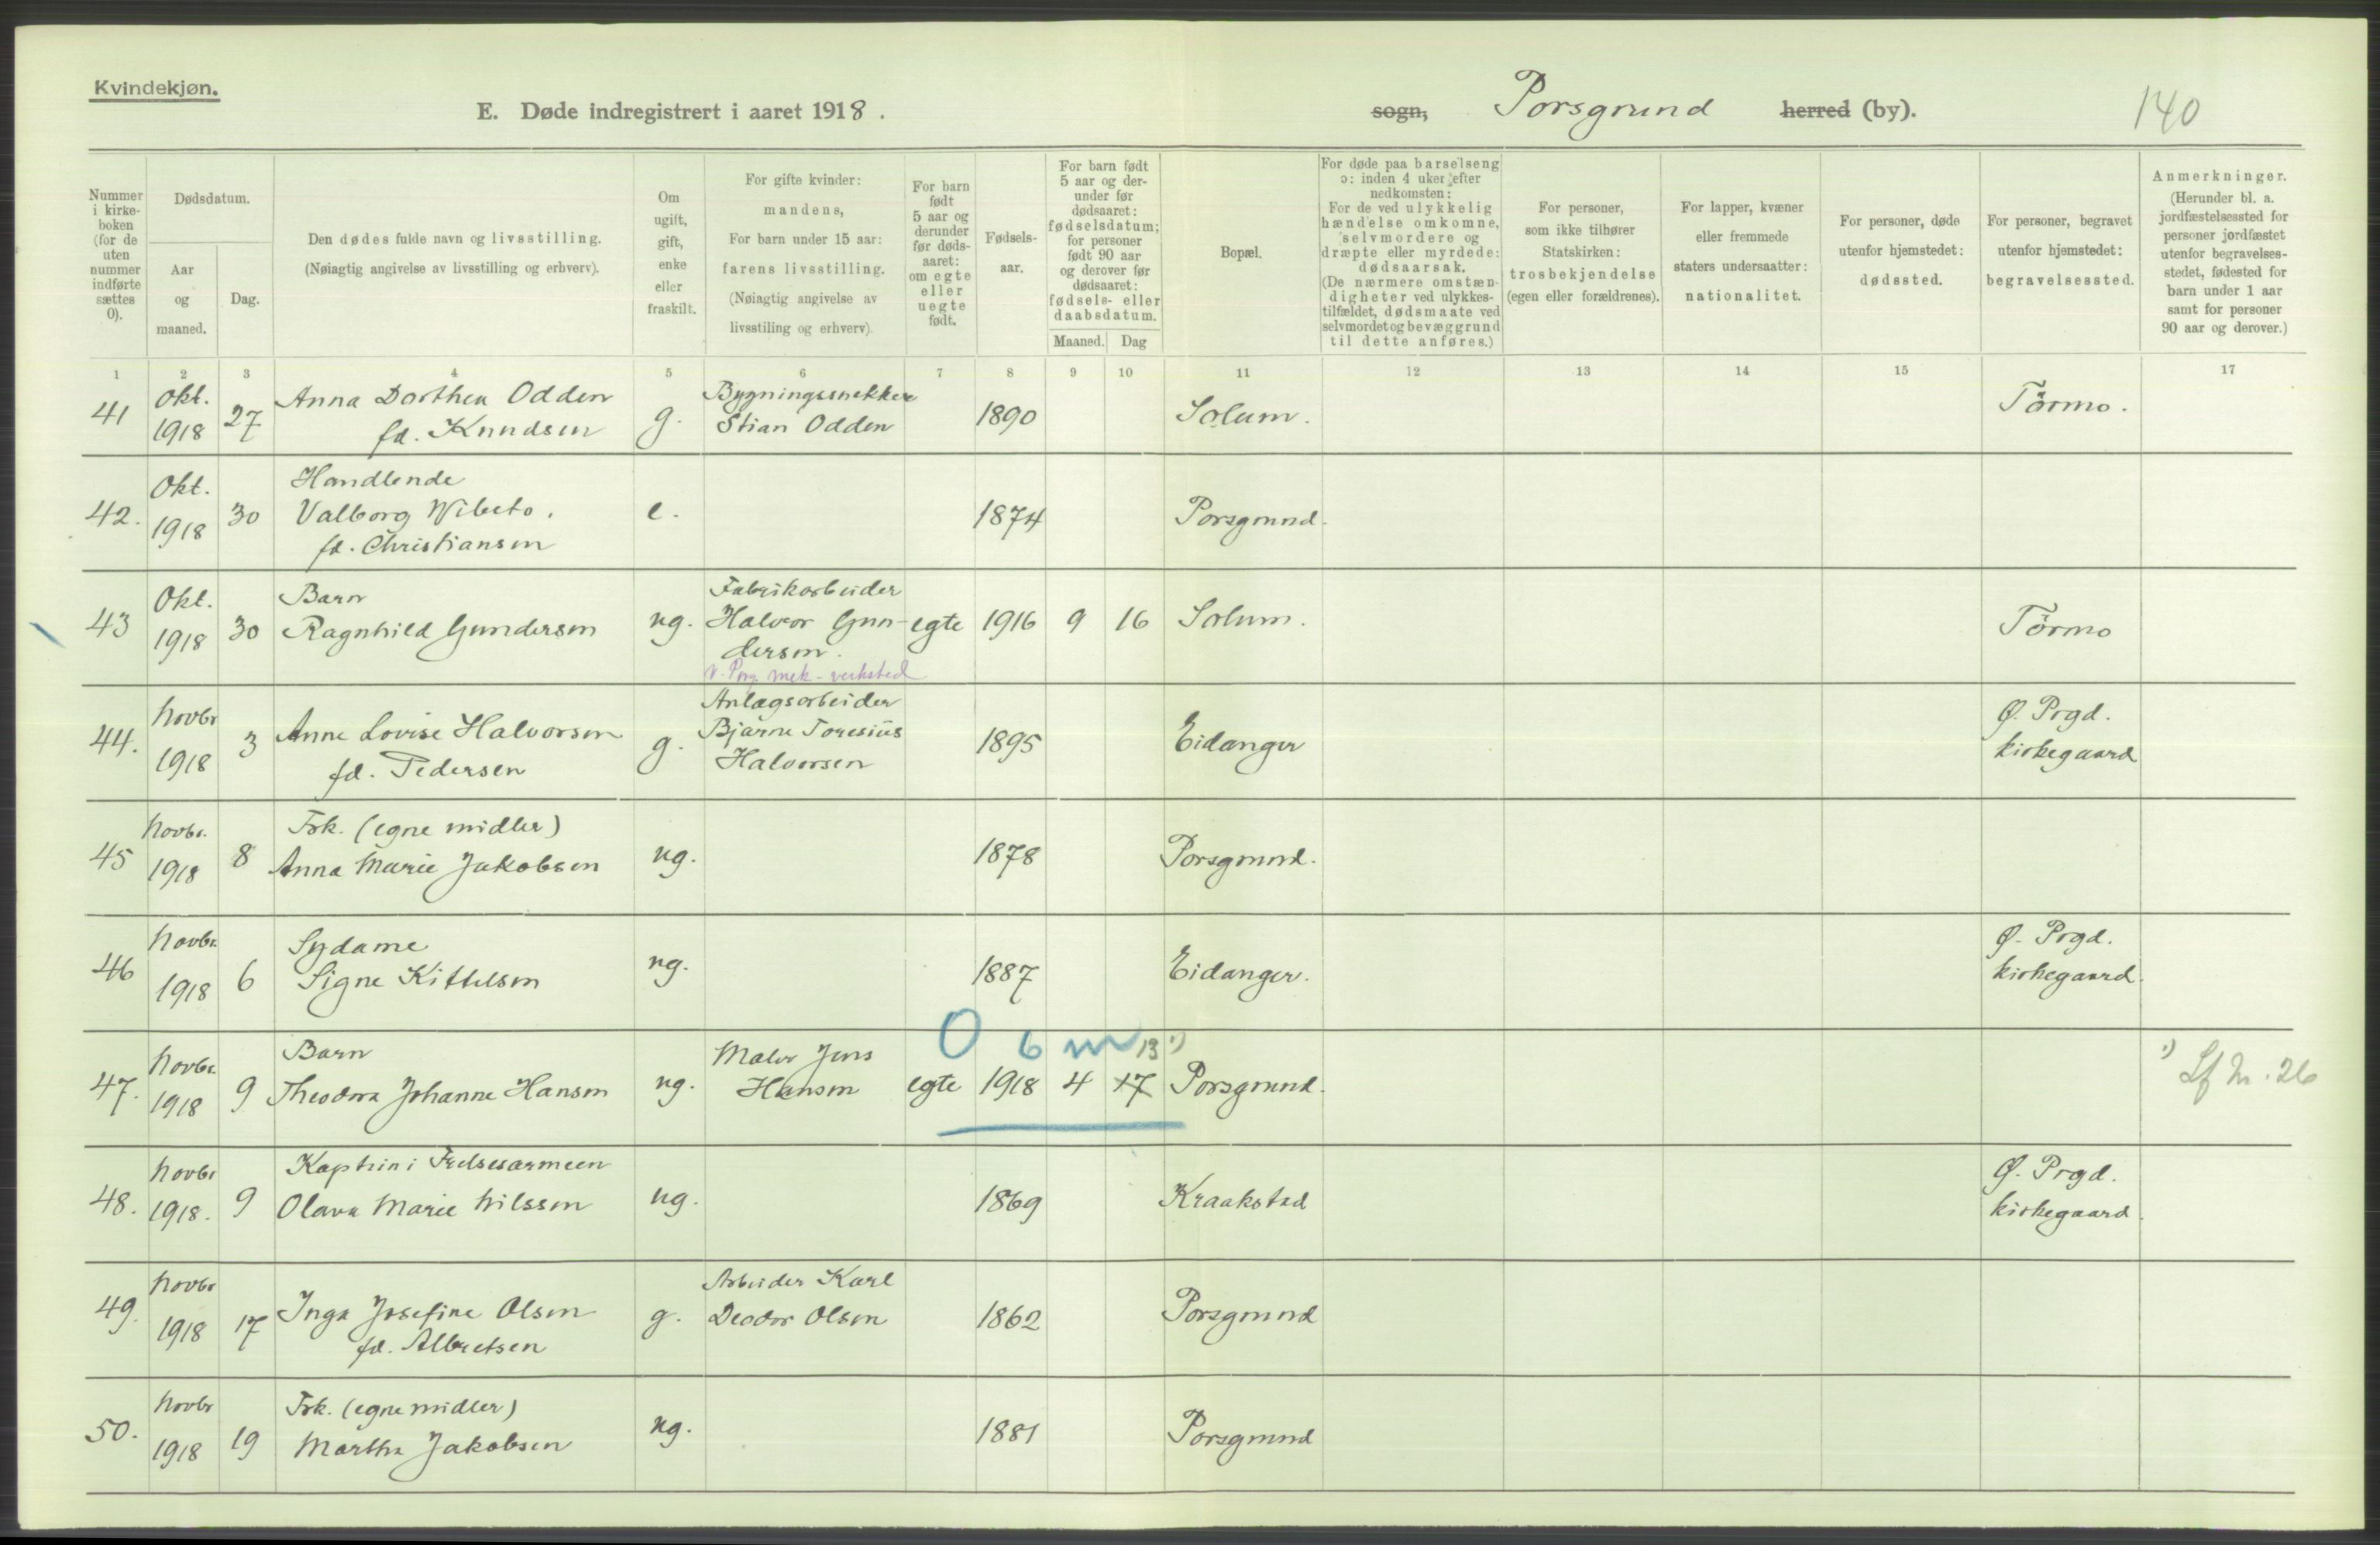 Kvindekjøn.
E. Døde indregistrert i aaret 1918.
sogn, Porsgrund herred (by).
140
Nummer i kirke- boken (for de uten nummer indførte sættes 0).
Dødsdatum.
Aar og maaned.
Dag.
Den dødes fulde navn og livsstilling.
(Nøiagtig angivelse av livsstilling og erhverv).
Om ugift, gift, enke eller fraskilt.
For gifte kvinder:
mandens,
For barn under 15 aar:
farens livsstilling.
(Nøiagtig angivelse av
livsstiling og erhverv).
For barn født 5 aar og derunder før døds- aaret: om egte eller uegte født.
Fødsels-
aar.
For barn født
5 aar og der-
under før
dødsaaret:
fødselsdatum;
for personer
født 90 aar
og derover før
dødsaaret:
fødsels- eller
daabsdatum.
Maaned. Dag
Bopæl.
For døde paa barselseng
ɔ: inden 4 uker efter
nedkomsten:
For de ved ulykkelig
hændelse omkomne,
selvmordere og
dræpte eller myrdede:
dødsaarsak.
(De nærmere omstæn-
digheter ved ulykkes-
tilfældet, dødsmaate ved
selvmordet og bevæggrund
til dette anføres.)
For personer,
som ikke tilhører
Statskirken:
trosbekjendelse
(egen eller forældrenes).
For lapper, kvæner
eller fremmede
staters undersaatter:
nationalitet.
For personer, døde
utenfor hjemstedet:
dødssted.
For personer, begravet
utenfor hjemstedet:
begravelsessted.
Anmerkninger.
(Herunder bl. a.
jordfæstelsessted for
personer jordfæstet
utenfor begravelses-
stedet, fødested for
barn under 1 aar
samt for personer
90 aar og derover.)
1 2 3 4 5 6 7 8 9 10 11 12 13 14 15 16 17
41 Okt. 1918 27 Anna Dorthea Odden
fd. Knudsen g. Bygningssnekker
Stian Odden 1890 Solum. Törmo.
42. Okt. 1918 30 Handlende
Valborg Wibeto.
fd. Christiansen e. 1874 Porsgrund.
43 Okt. 1918 30 Barn
Ragnhild Gundersen ug. Fabrikarbeider
Halvor Gun-
dersen.
v. Porg. mek. verksted egte 1916 9 16 Solum. Törmo
44. Novbr 1918 3 Anne Lovise Halvorsen
fd. Pedersen g. Anlægsarbeider
Bjarne Toresius
Halvorsen 1895 Eidanger Ø. Prgd.
kirkegaard
45 Novbr. 1918 8 Frk. (egne midler)
Anna Marie Jakobsen ug. 1878 Porsgrund.
46 Novbr. 1918 6 Sydame
Signe Kittelsen ug. 1887 Eidanger. Ø. Prgd.
kirkegaard.
0 6 m
47. Novbr. 1918 9 Barn
Theodora Johanne Hansen ug. Maler Jens
Hansen egte 1918 4 17 13 ¹) Porsgrund. ¹) Lf Nr. 26
48. Novbr 1918. 9 Kaptein i Frelsesarmeen
Olava Marie Nilssen ug. 1869 Kraakstad Ø. Prgd.
kirkegaard.
49. Novbr 1918 17 Inga Josefine Olsen
fd. Albretsen g. Arbeider Karl
Deodor Olsen 1862 Porsgrund
50. Novbr 1918 19 Frk. (egne midler)
Martha Jakobsen ug. 1881 Porsgrund